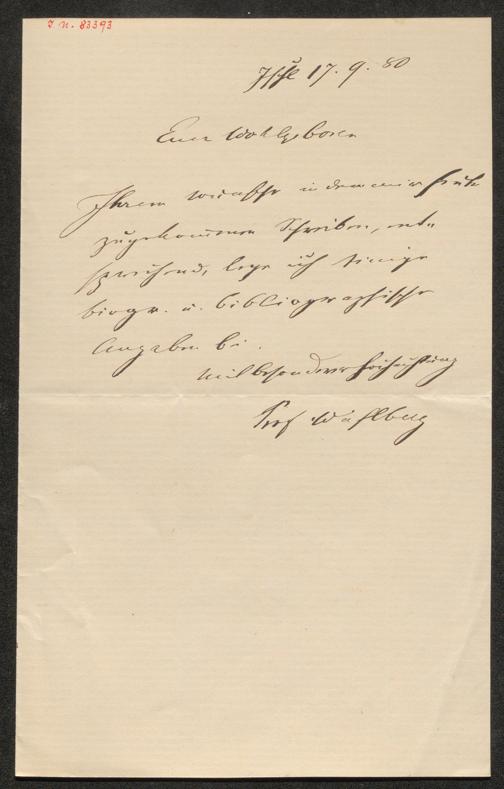 I. N. 83393
Ischl 17. 9. 80
Euer Wohlgeboren
Ihrem Wunsche in dem mir heute
zugekommenen Schreiben, ent-
sprechend, lege ich einige
biogr. u. bibliographische
Angaben bei.
Mit besonderer Hochachtung
Prof Wahlberg